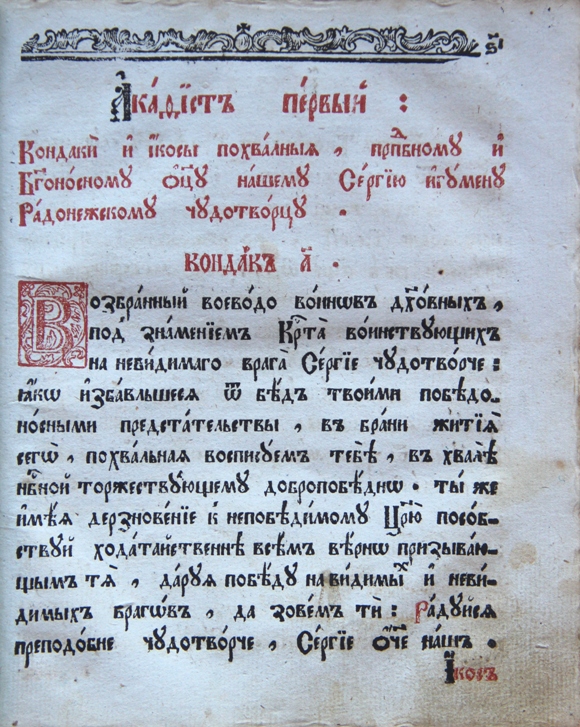 ѕ҃і
А҆ка́ѳїстъ пе́рвый :
Кондакѝ и҆ і҆́косы похва́лныѧ , прпⷣбному и҆
Бг҃оно́сному ѻ҆ц҃ꙋ̀ на́шемꙋ Се́ргїю и҆гꙋ́менꙋ
Ра́донежскомꙋ чꙋдотво́рцꙋ .
конда́къ а҃ .
Возбра́нный воево́до во́инѡвъ дꙋхо́вныхъ ,
под̾ зна́менїемъ Крⷭ҇та̀ во́инствꙋющихъ
на неви́димаго врага̀ Се́ргїе чꙋдотво́рче :
ꙗ҆́кѡ и҆зба́вльшесѧ ѿ бѣ́дъ твои́ми побѣдо
но́сными предста́тельствы , въ бра́ни житїѧ̀
сегѡ̀ , похва́льнаѧ восписꙋ́емъ тебѣ̀ , въ хвалѣ̀
нбⷭ҇ной торжествꙋ́ющемꙋ добропобѣ́днѡ . ты́ же
и҆мѣ́ѧ дерзнове́нїе к̾ непобѣди́момꙋ Цр҃ю̀ посо́б-
ствꙋй хода́тайственнѣ всѣ́мъ вѣ́рнѡ призыва́ю-
щымъ тѧ̀ , да́рꙋѧ побѣ́дꙋ на ви́димыⷯ и҆ неви́-
димыхъ врагѡ́въ , да зове́мъ тѝ : Ра́дꙋйсѧ
преподо́бне чꙋдотво́рче , Се́ргїе ѻ҆́ч҃е на́шъ .
І҆́косъ